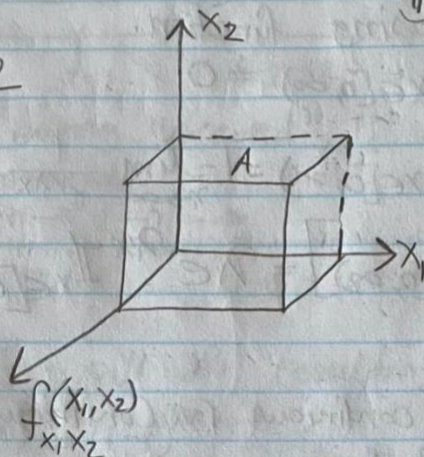 X₂
A
X₁
f(x₁,x₂)
x₁x₂